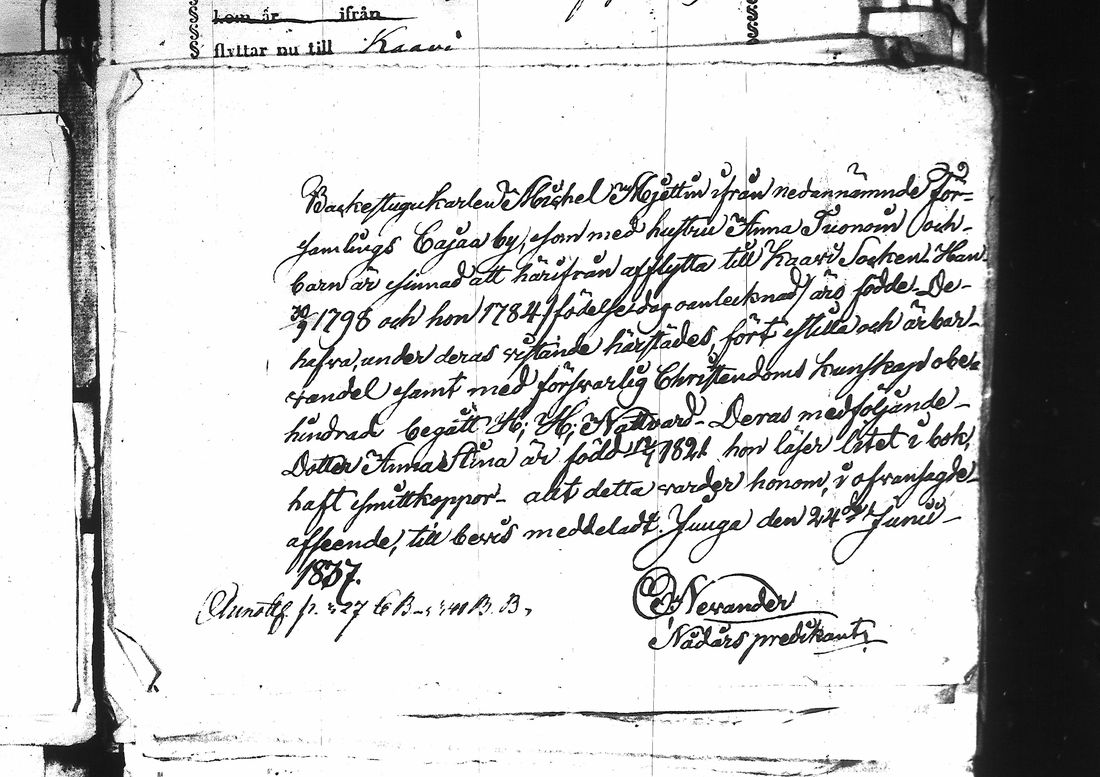 kom år ifrån
flyttar nu till Kaavi
Backestugukarlen Michel Mjettin ifrån nedannämnde För-
samlings Cajaa by, som med hustru Anna Tuonoin och
barn är sinnad att härifrån afflytta till Kaavi Socken. Han
30/9 1798 och hon 1784 /födelsedag oantecknad/ äro födde. De
hafva, under deras vistande härstädes, fört stilla och ärbar
vandel samt med försvarlig Christendoms kunskap obe-
hindrade begått H. H. Nattvard. Deras medföljande
Dotter Anna Stina är född 1821 hon läser litet i bok,
haft smittkoppor - allt detta varder honom, i ofvansagde
afseende, till bevis meddeladt. Juuga den 24de Junii
1837.
Nevander
Nådårs predikant.
p. 327 B. B.